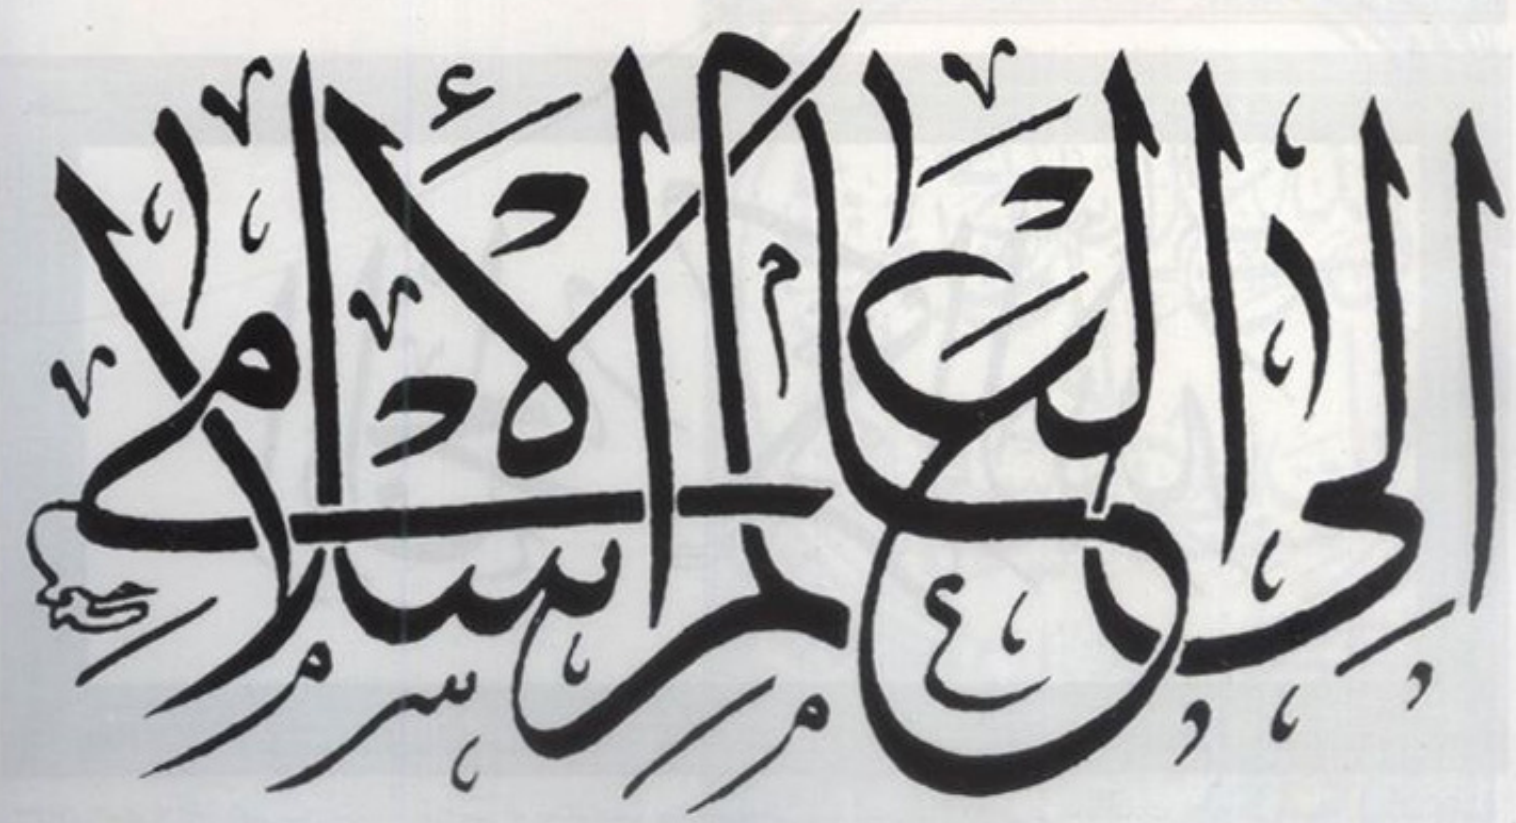 الى العالم الاسلامي